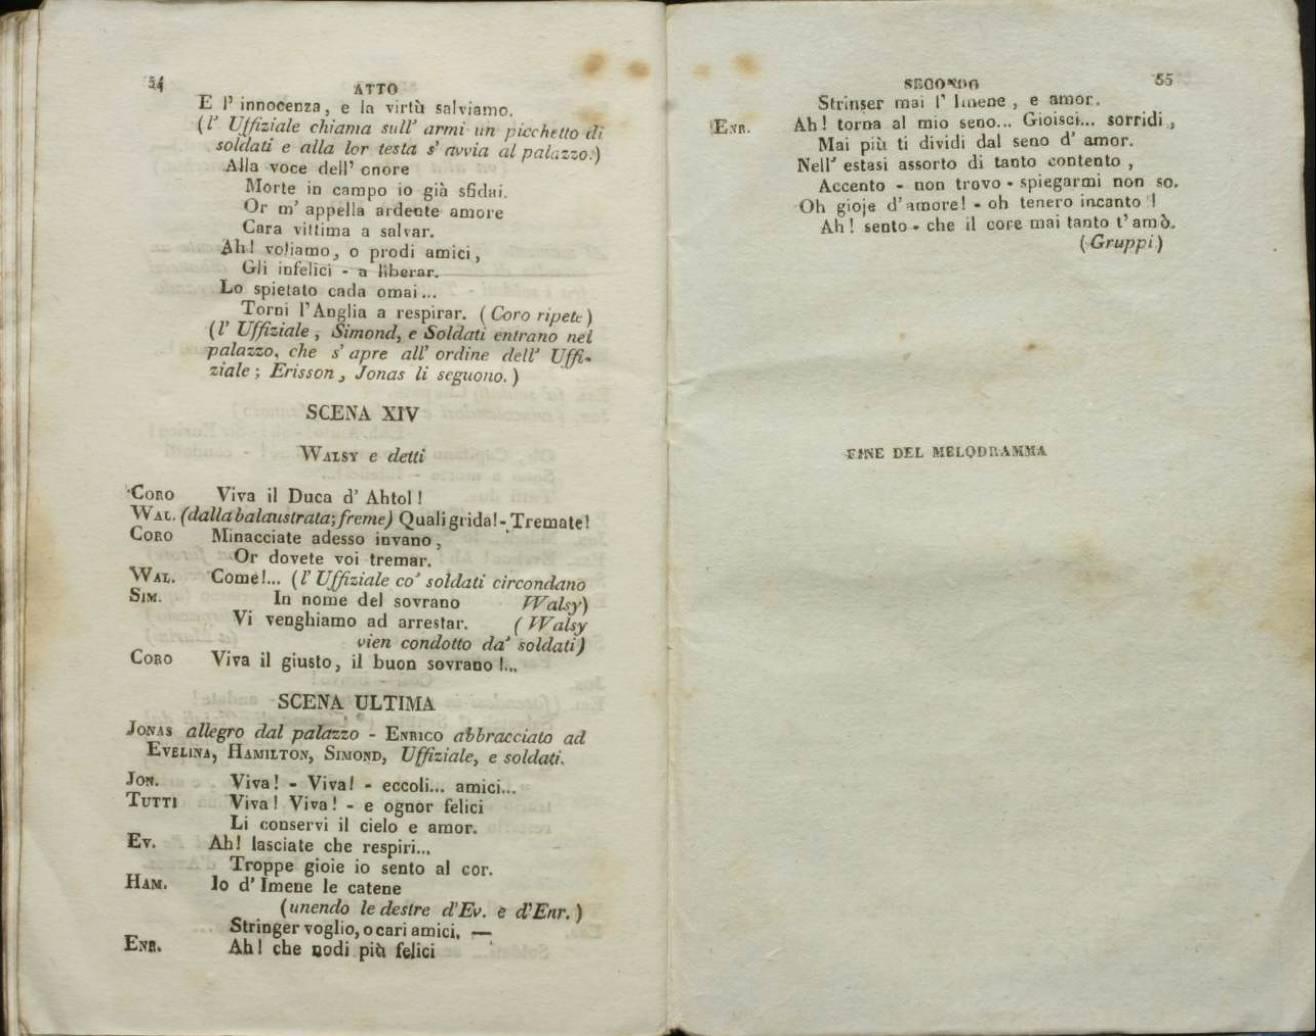 54
ATTO
E l' innocenza, e la virtù salviamo.
(l' Uffiziale chiama sull' armi un picchetto di
soldati e alla lor testa s' avvia al palazzo.)
Alla voce dell' onore
Morte in campo io già sfidai.
Or m' appella ardente amore
Cara vittima a salvar.
Ah! voliamo, o prodi amici,
Gli infelici - a liberar.
Lo spietato cada omai...
Torni l' Anglia a respirar. (Coro ripete)
(l' Uffiziale, Simond, e Soldati entrano nel
palazzo, che s' apre all' ordine dell' Uffi-
ziale; Erisson, Jonas li seguono.)
SCENA XIV
WALSY e detti
CORO Viva il Duca d' Ahtol!
WAL. (dalla balaustrata; freme) Quali grida!- Tremate!
CORO Minacciate adesso invano,
Or dovete voi tremar.
WAL. Come!... (l' Uffiziale co' soldati circondano
SIM. In nome del sovrano Walsy)
Vi venghiamo ad arrestar. (Walsy
vien condotto da' soldati)
CORO Viva il giusto, il buon sovrano!...
SCENA ULTIMA
JONAS allegro dal palazzo - ENRICO abbracciato ad
EVELINA, HAMILTON, SIMOND, Uffiziale, e soldati.
JON. Viva! - Viva! - eccoli... amici...
TUTTI Viva! Viva! - e ognor felici
Li conservi il cielo e amor.
EV. Ah! lasciate che respiri...
Troppe gioie io sento al cor.
HAM. Io d' Imene le catene
(unendo le destre d'Ev. e d'Enr.)
Stringer voglio, o cari amici. —
ENR. Ah! che nodi più felici
SECONDO
55
Strinser mai l' Imene, e amor.
ENR. Ah! torna al mio seno... Gioisci... sorridi,
Mai più ti dividi dal seno d' amor.
Nell' estasi assorto di tanto contento,
Accento - non trovo - spiegarmi non so.
Oh gioje d' amore! - oh tenero incanto!
Ah! sento - che il core mai tanto t' amò.
(Gruppi)
FINE DEL MELODRAMMA